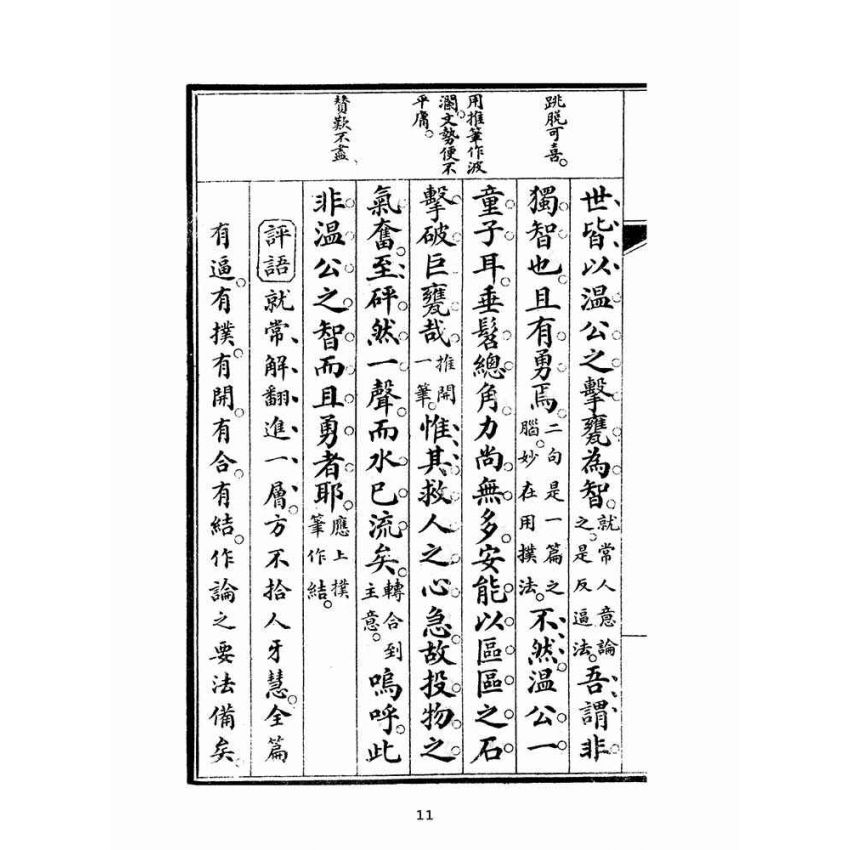 跳脫可喜。
用推筆作波
瀾。文勢便不
平庸。
贊歎不盡、
世皆以温公之擊甕為智。就常人意論之。是反逼法。吾謂非
獨智也。且有勇焉。二句是一篇之腦。妙在用撲法。不然。温公一
童子耳。垂髫總角。力尚無多。安能以區區之石
擊破巨甕哉。推開一筆。惟其救人之心急。故投物之
氣奮。至砰然一聲。而水已流矣。轉合到主意。嗚呼。此
非温公之智而且勇者耶。應上撲筆作結。
評語 就常解翻進一層。方不拾人牙慧。全篇
有逼。有撲。有開。有合。有結。作論之要法備矣。
11